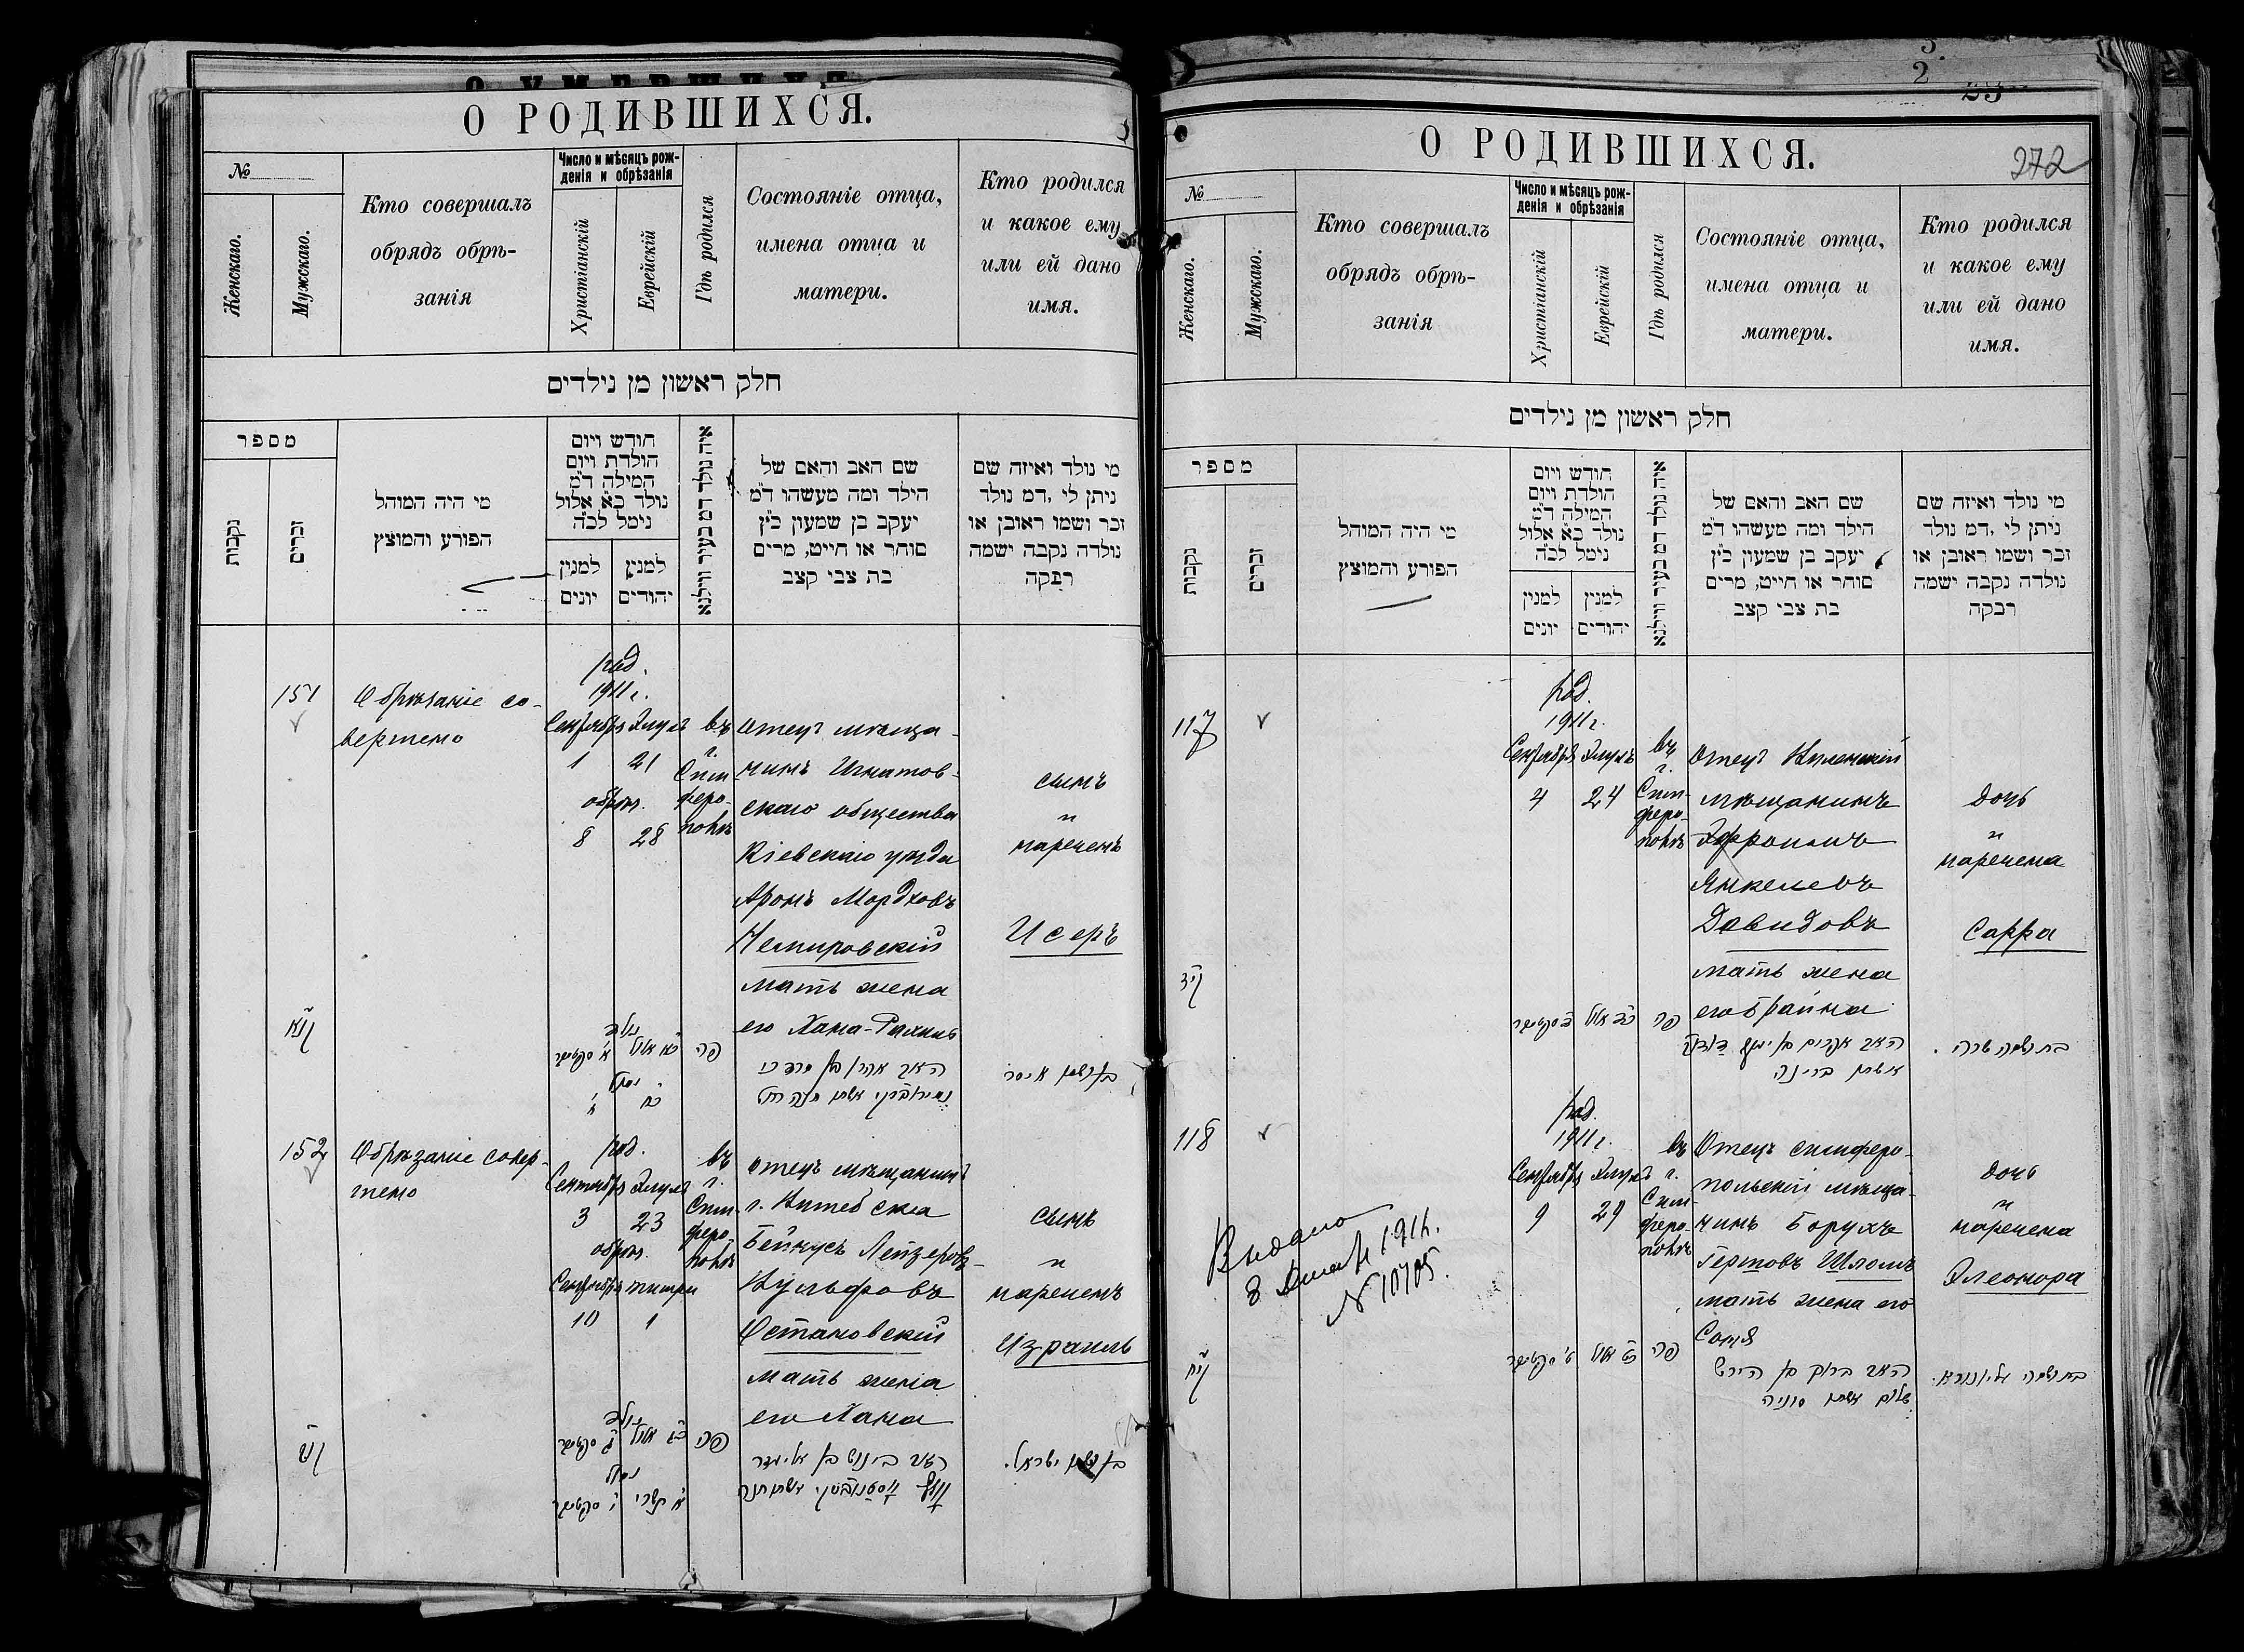 О РОДИВШИХСЯ.
№
Женскаго.
Мужскаго.
Кто совершалъ
обрядъ обрѣ-
занія
Число и мѣсяцъ рож-
денія и обрѣзанія
Христіанскій
Еврейскій
Гдѣ родился
Состояніе отца,
имена отца и
матери.
Кто родился
и какое ему
или ей дано
имя.
חלק ראשון מן נילדים
מספר
נקבות
זכרים
מי היה המוהל
הפורע והמוצץ
חודש ויום
הולדת ויום
המילה ד״מ
נולד כ״א אלול
נימל לכ״ה
למנין
יונים
למנין
יהודים
איה נולד דמ בעיר ווילנא
שם האב והאם של
הילד ומה מעשהו ד״מ
יעקב בן שמעון כ״ץ
סוחר או חייט, מרים
בת צבי קצב
מי נולד ואיזה שם
ניתן לי, דמ נולד
זכר ושמו ראובן או
נולדה נקבה ישמה
רבקה
151
Обрѣзаніе со-
вершено
род.
1911 г.
Сентября Элулъ
1 21
обрѣз.
8 28
въ
г.
Сим
феро-
полѣ
Отецъ мѣща-
нинъ Игнатов-
скаго общества
Кіевскаго уѣзда
Аронъ Мордховъ
Немировскій
мать жена
его Хана-Рахиль
сынъ
и
нареченъ
Исеръ
קנא
נולד
כא אלול
א׳ סקטיבר
נימול
כח
ח׳
פה
האב אהרן בן מרדכי
נמיראבסקי אשתו חנה רחל
בן ושמו איסר
152
Обрѣзаніе совер-
шено
род.
Сентября Элулъ
3 23
обрѣз.
Сентября тишри
10 1
въ
г.
Сим
феро-
полѣ
Отецъ мѣщанинъ
г. Витебска
Бейнусъ Лейзеровъ-
Вульфовъ
Остановскій
мать жена
его Хана
сынъ
и
нареченъ
Израиль
נולד
כג אלול
ג׳ סקטיבר
נימול
א׳ תשרי
י׳ סקטיבר
פה
בן ושמו ישראל.
О РОДИВШИХСЯ.
272
№
Женскаго.
Мужскаго.
Кто совершалъ
обрядъ обрѣ-
занія
Число и мѣсяцъ рож-
денія и обрѣзанія
Христіанскій
Еврейскій
Гдѣ родился
Состояніе отца,
имена отца и
матери.
Кто родился
и какое ему
или ей дано
имя.
חלק ראשון מן נילדים
מספר
נקבות
זכרים
מי היה המוהל
הפורע והמוצץ
חודש ויום
הולדת ויום
המילה ד״מ
נולד כ״א אלול
נימל לכ״ה
למנין
יונים
למנין
יהודים
איה נולד דמ בעיר ווילנא
שם האב והאם של
הילד ומה מעשהו ד״מ
יעקב בן שמעון כ״ץ
סוחר או חייט, מרים
בת צבי קצב
מי נולד ואיזה שם
ניתן לי, דמ נולד
זכר ושמו ראובן או
נולדה נקבה ישמה
רבקה
117
род.
1911 г.
Сентября Элулъ
4 24
въ
г.
Сим-
феро-
полѣ
Отецъ Виленскій
мѣщанинъ
Эфроимъ
Янкелевъ
Давидовъ
мать жена
его Брайна
Дочь
и
наречена
Сарра
קיז
כד אלול
ד סקטיבר
פה
האב אפרים בן יעקב דודוב
אשתו בריינה
בת ושמה שרה.
118
Выдано
№ 10705.
род.
1911 г.
Сентября Элулъ
9 29
въ
г.
Сим
феро-
полѣ
Отецъ симферо-
польскій мѣща-
нинъ Борухъ
Гершовъ Шломъ
мать жена его
Соня
Дочь
и
наречена
Элеонора
קיח
כט אלול
ט׳ סקטיבר
פה
האב ברוך בן הירש
שלום אשתו סוניה
בת ושמה אליאנורא.